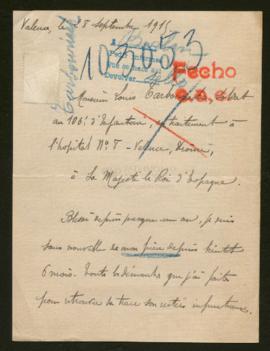 Valence, le 28 Septembre 1915
103053
Fecho
Monsieur Louis
au 106è d'Infanterie, en traitement à
l'hôpital Nº 8 - Valence, Drôme,
à Sa Majesté le Roi d'Espagne.
Blessé depuis presque un an, je suis
sans nouvelle de mon frère depuis bientôt
6 mois. Toutes les démarches que j'ai faites
pour retrouver sa trace sont restées infructueuses.